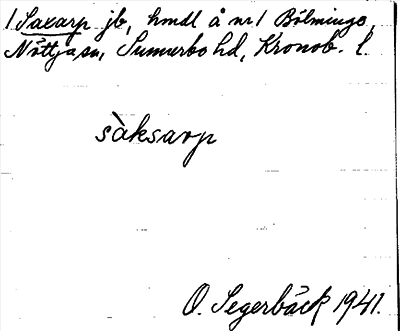 1 Saxarp jb, hmdl å nr 1 Bölminge,
Nöttja sn, Sunnerbo hd, Kronob. l.
sàksarp
O. Segerbäck 1941.